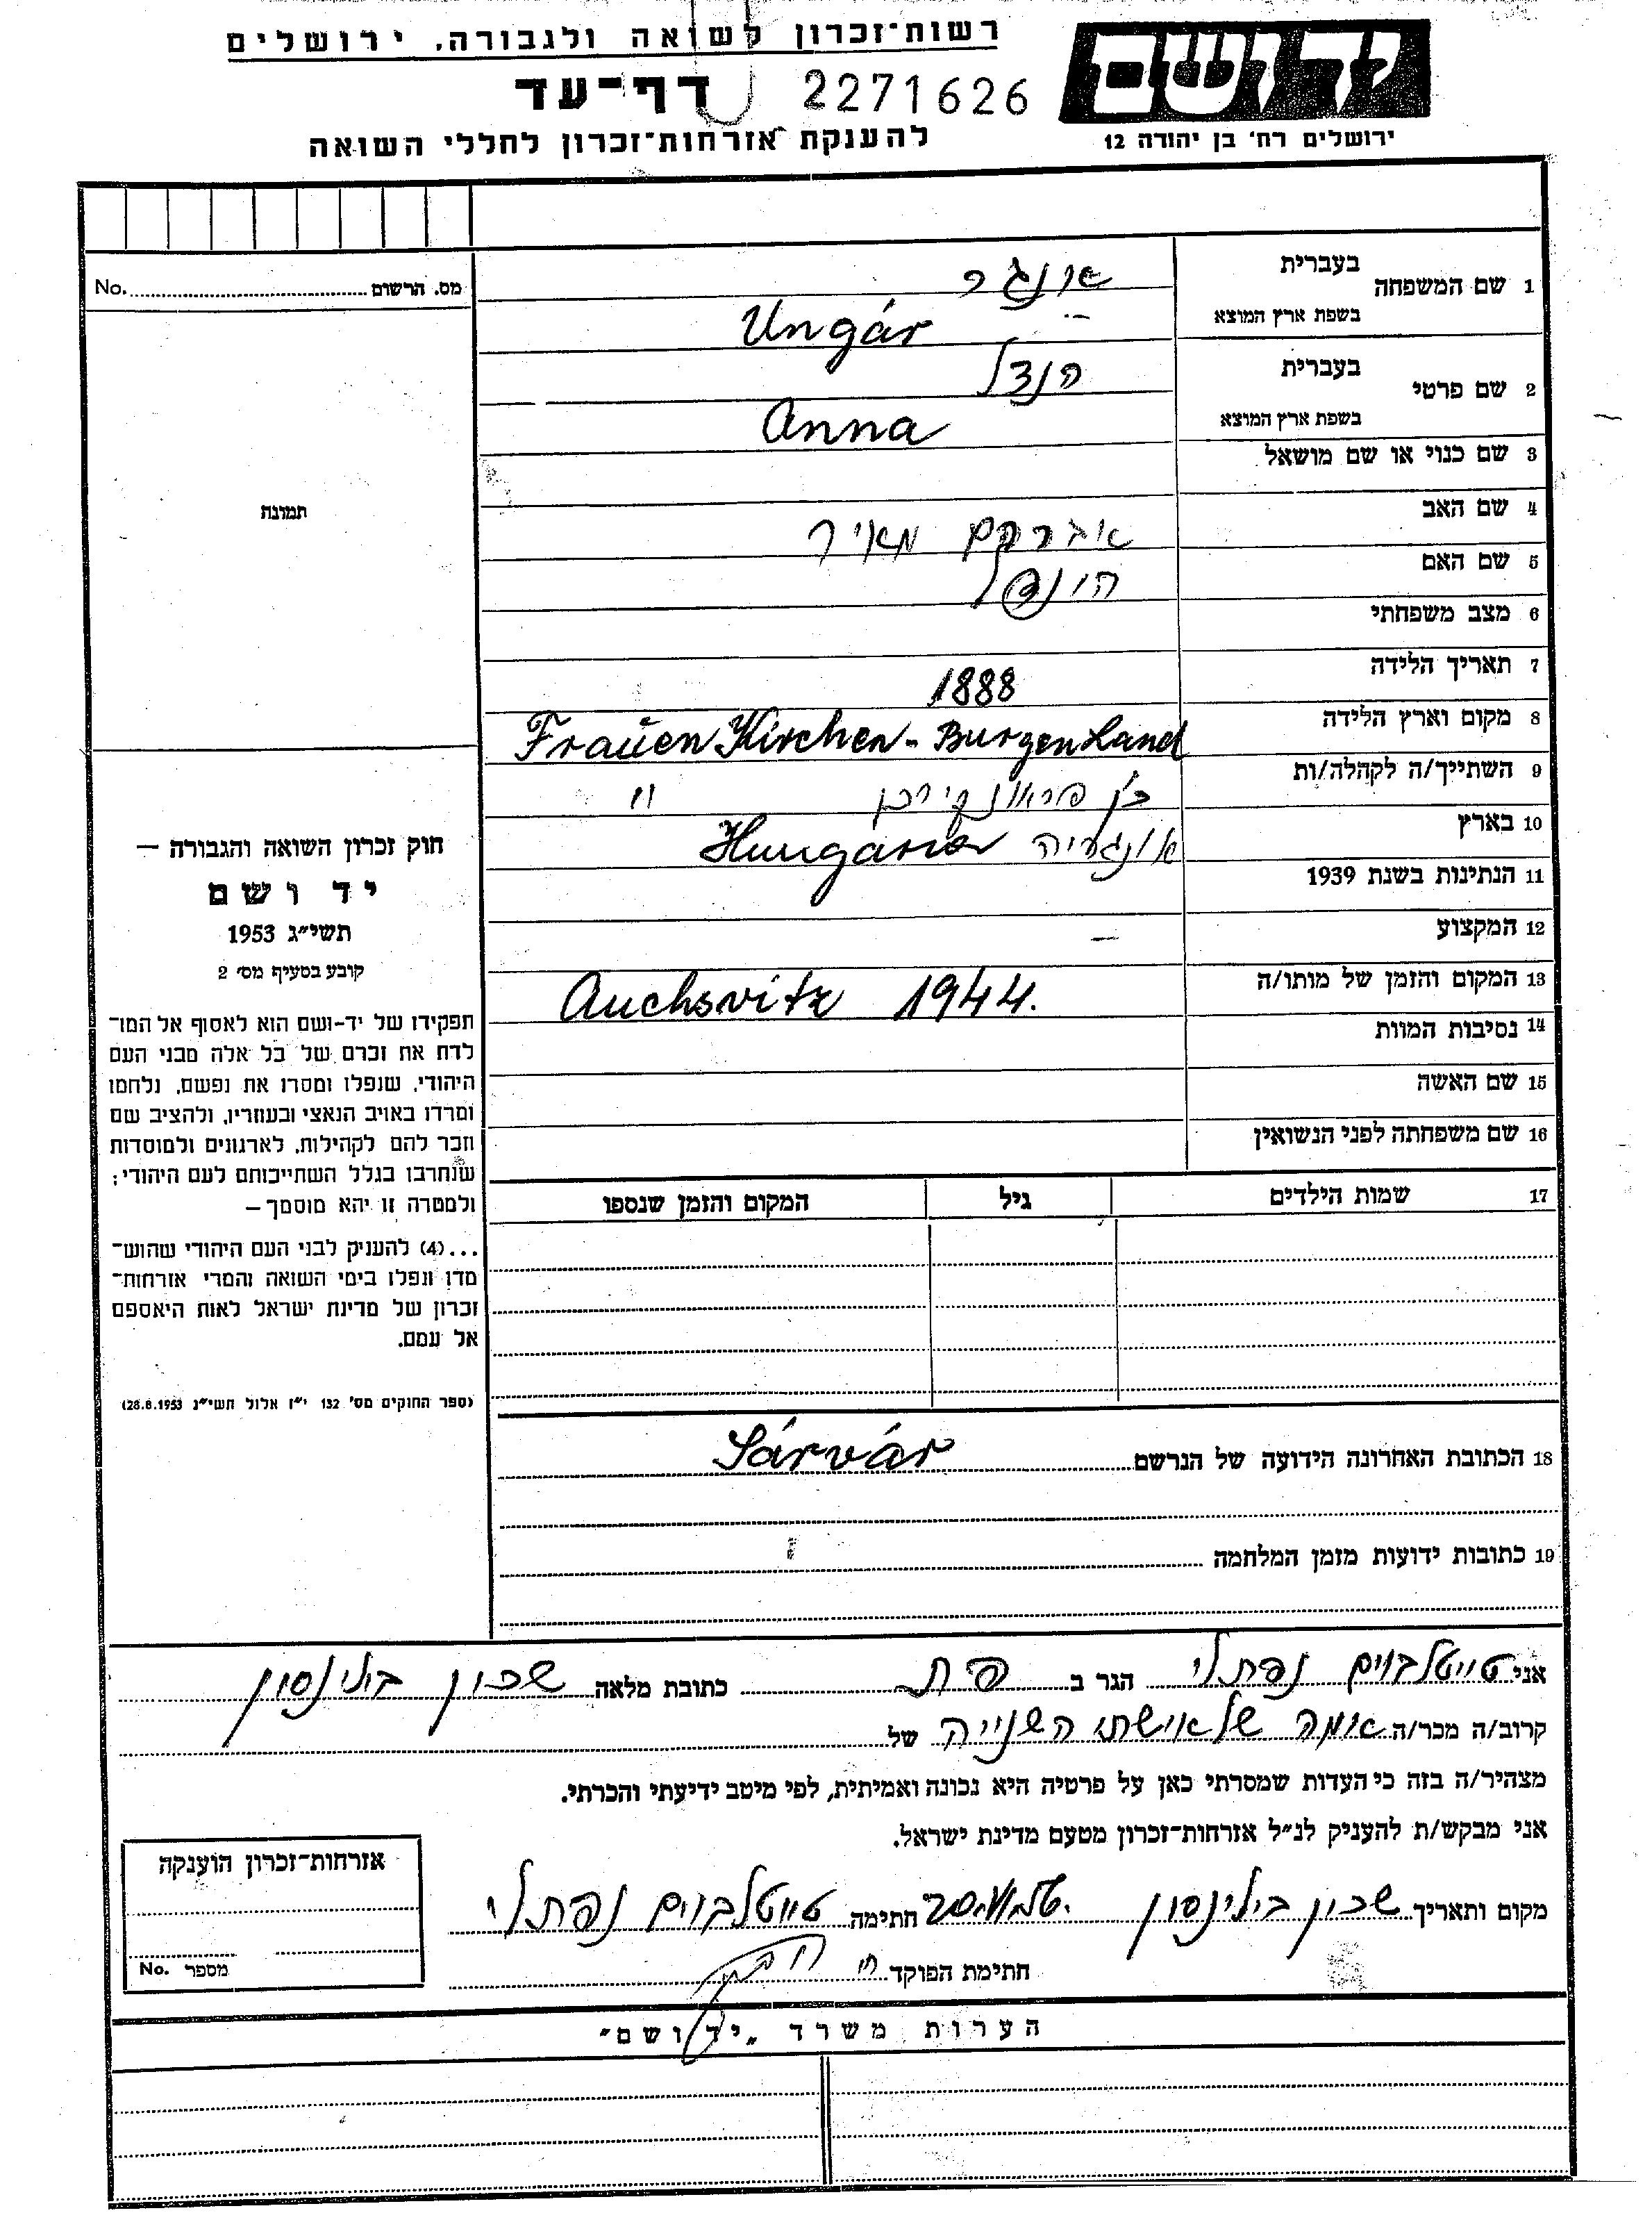 רשות־זכרון לשואה ולגבורה, ירושלים
יד ושם
דף־עד 2271626
ירושלים רח' בן יהודה 12
להענקת אזרחות־זכרון לחללי השואה
מס. הרשום No.
1 שם המשפחה בעברית אונגר
בשפת ארץ המוצא Ungár
2 שם פרטי בעברית הנדל
בשפת ארץ המוצא Anna
3 שם כנוי או שם מושאל
תמונה
4 שם האב אברהם מאיר
5 שם האם
6 מצב משפחתי
7 תאריך הלידה 1888
8 מקום וארץ הלידה Frauen Kirchen - Burgenland
9 השתייך/ה לקהלה/ות
10 בארץ אונגריה Hungária
11 הנתינות בשנת 1939
12 המקצוע –
13 המקום והזמן של מותו/ה Auchsvitz 1944.
14 נסיבות המוות
15 שם האשה
16 שם משפחתה לפני הנשואין
17 שמות הילדים גיל המקום והזמן שנספו
חוק זכרון השואה והגבורה –
יד ושם
תשי״ג 1953
קובע בסעיף מס' 2
תפקידו של יד-ושם הוא לאסוף אל המו־
לדת את זכרם של כל אלה מבני העם
היהודי, שנפלו ומסרו את נפשם, נלחמו
ומרדו באויב הנאצי ובעוזריו, ולהציב שם
וזכר להם לקהילות, לארגונים ולמוסדות
שנחרבו בגלל השתייכותם לעם היהודי;
ולמטרה זו יהא מוסמך –
...(4) להעניק לבני העם היהודי שהוש־
מדו ונפלו בימי השואה והמרי אזרחות־
זכרון של מדינת ישראל לאות היאספם
אל עמם.
(ספר החוקים מס' 132 י״ז אלול תשי״ג 28.8.1953)
18 הכתובת האחרונה הידועה של הנרשם Sárvár
19 כתובות ידועות מזמן המלחמה
אני טייטלבוים נפתלי הגר ב פ ת כתובת מלאה שכון בילינסון
קרוב/ה מכר/ה אמה של אישתי השנייה של
מצהיר/ה בזה כי העדות שמסרתי כאן על פרטיה היא נכונה ואמיתית, לפי מיטב ידיעתי והכרתי.
אני מבקש/ת להעניק לנ״ל אזרחות־זכרון מטעם מדינת ישראל.
מקום ותאריך שכון בילינסון חתימה טייטלבוים נפתלי
חתימת הפוקד
אזרחות־זכרון הוענקה
מספר No.
הערות משרד „יד ושם״